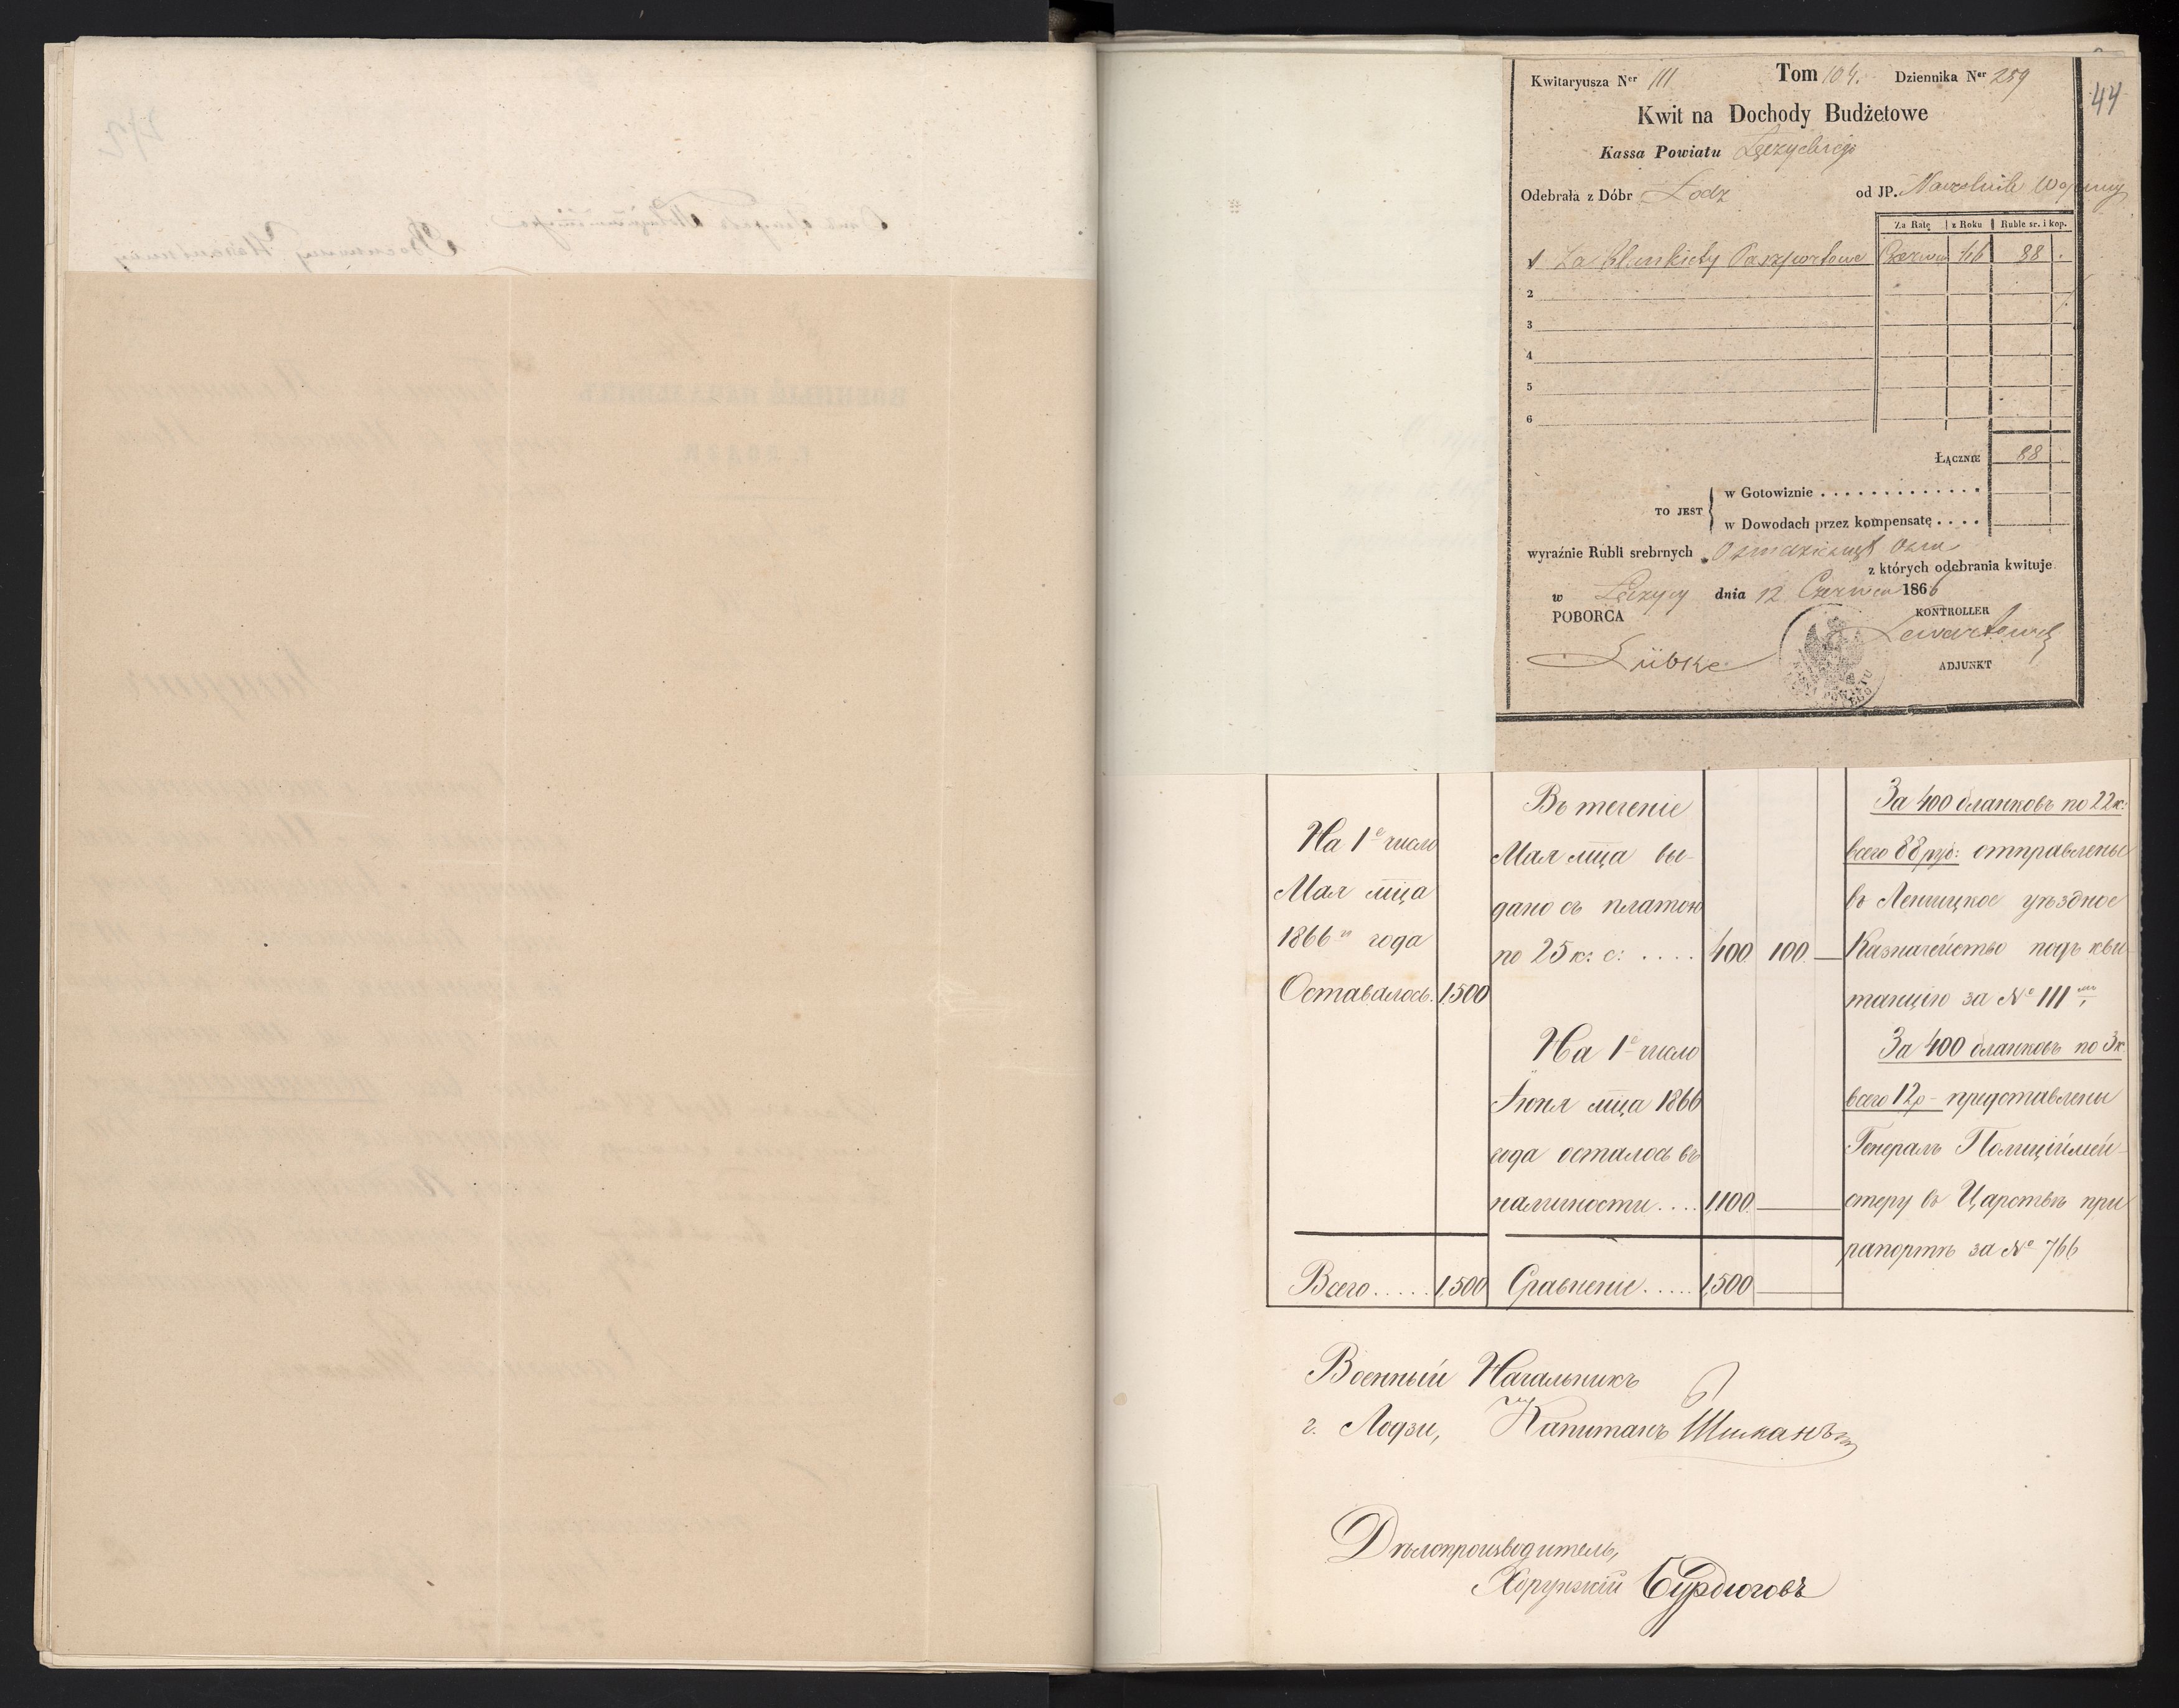 Kwitaryusza Ner 111 Tom 104. Dziennika Ner 259
44
Kwit na Dochody Budżetowe
Kassa Powiatu Łęczyckiego
Odebrała z Dóbr Łodz od JP. Naczelnik Wojenny
Za Ratę z Roku Ruble sr. i kop.
1 Za blankiety Paszportowe Czerwiec 1866 88
2
3
4
5
6
ŁĄCZNIE 88
TO JEST
w Gotowiznie . . . . . . . . . . . . . .
w Dowodach przez kompensatę . . . .
wyraźnie Rubli srebrnych Osmdziesiąt Osm
z których odebrania kwituje
w Łęczycy dnia 12 Czerwca 1866
POBORCA KONTROLLER
Lübke
ADJUNKT
На 1е число
Мая мца
1866го года
Оставалось. 1,500
Всего ..... 1,500
Въ теченіе
Мая мца вы-
дано съ платою
по 25 к: с: .... 400 100 —
На 1е число
Іюня мца 1866
года осталось въ
наличности .... 1,100
Сравненіе ..... 1,500
За 400 бланковъ по 22 к:
всего 88 руб: отправлены
въ Ленчицкое уѣздное
Казначейство подъ кви
танцію за № 111мъ,
За 400 бланковъ по 3 к
всего 12 р - представлены
Генералъ Полиціймей-
стеру въ Царствѣ при
рапортѣ за № 766
Военный Начальникъ
г. Лодзи, Капитанъ
Дѣлопроизводитель,
Хорунжій Бурдюговъ